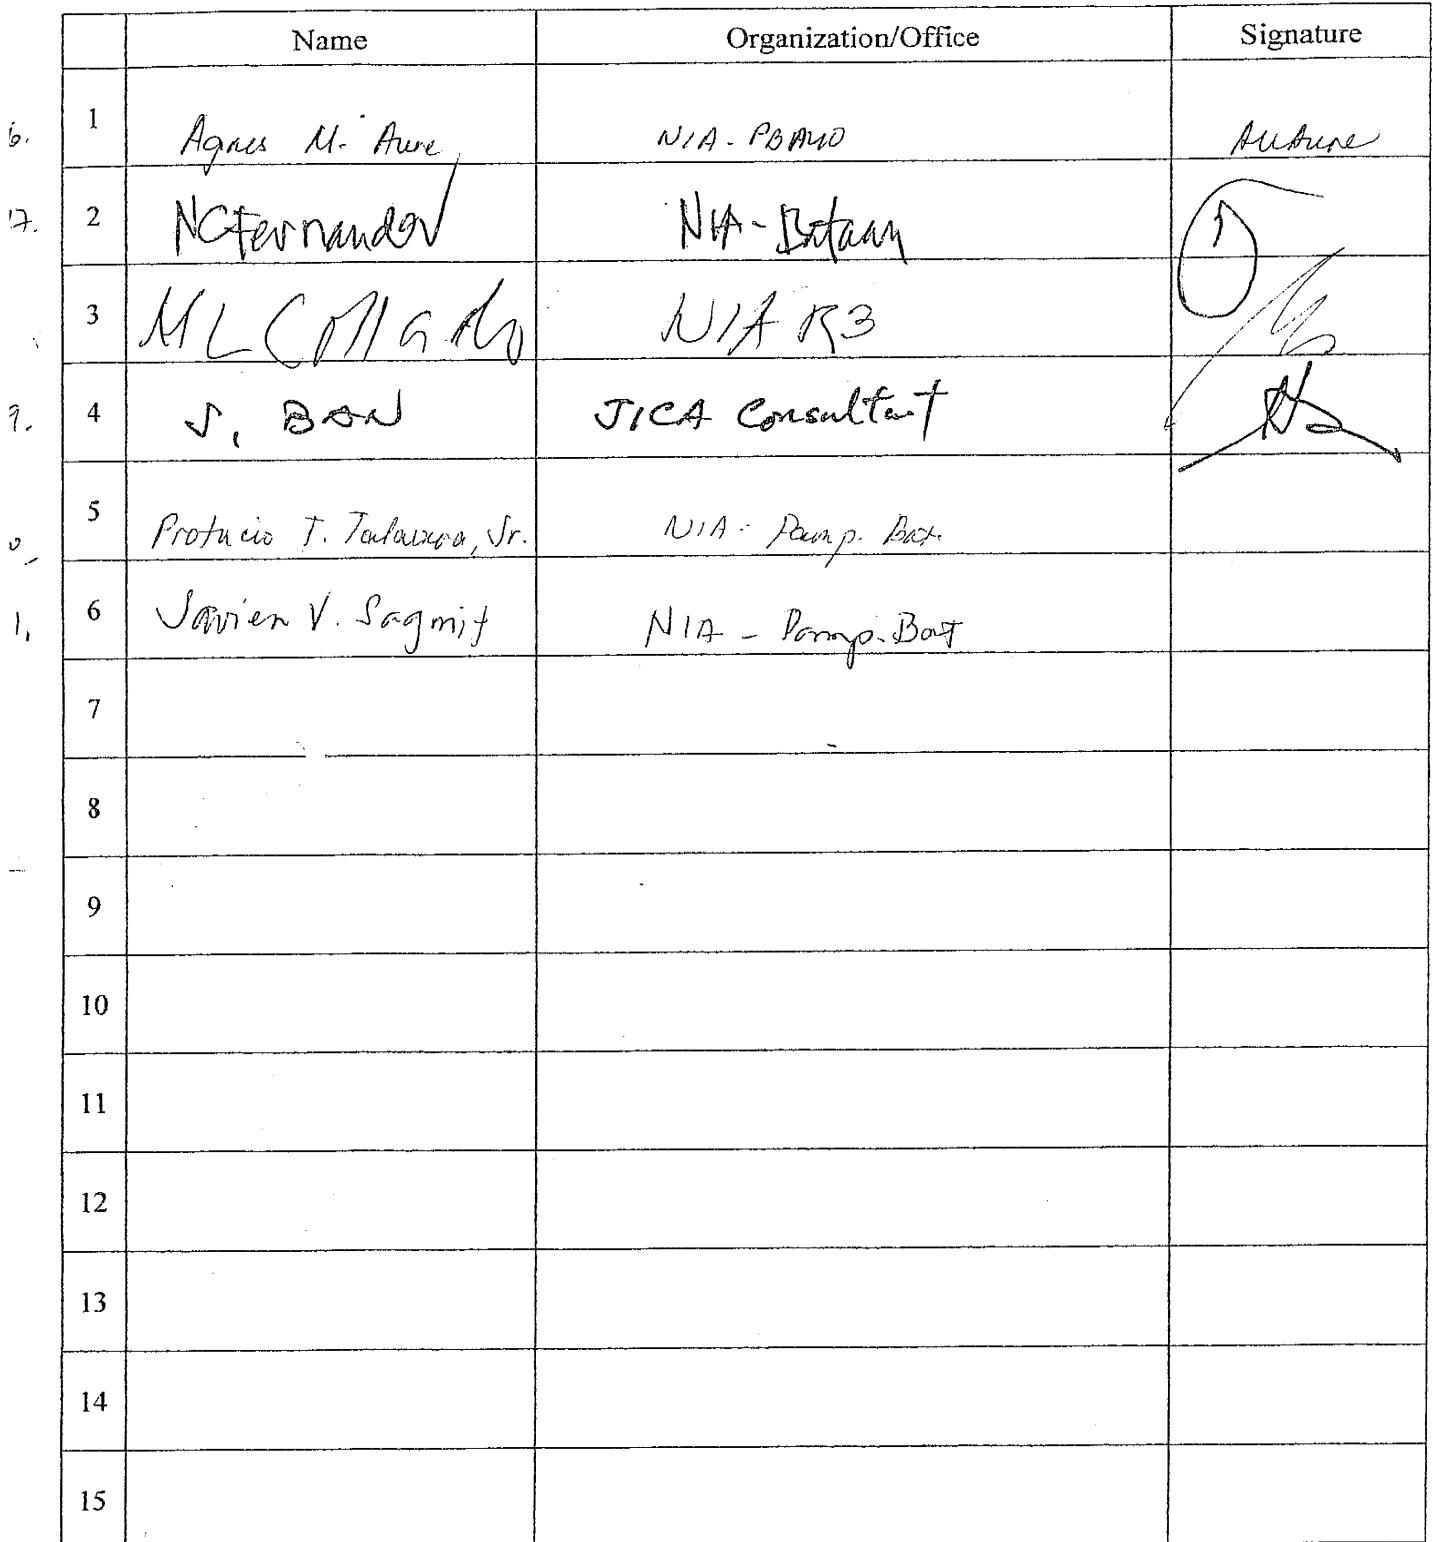 Name Organization/Office Signature
6. 1 Agnes M. Aure NIA-PBAMO AMAure
17. 2 NCFernandez NIA-Bataan
3 ML Collado NIA R3
9. 4 S. BAN JICA Consultant
0 5 T. Talavera, Jr. NIA - Pamp. Bat.
1, 6 Javier V. Sagmit NIA - Pamp. Bat
7
8
9
10
11
12
13
14
15